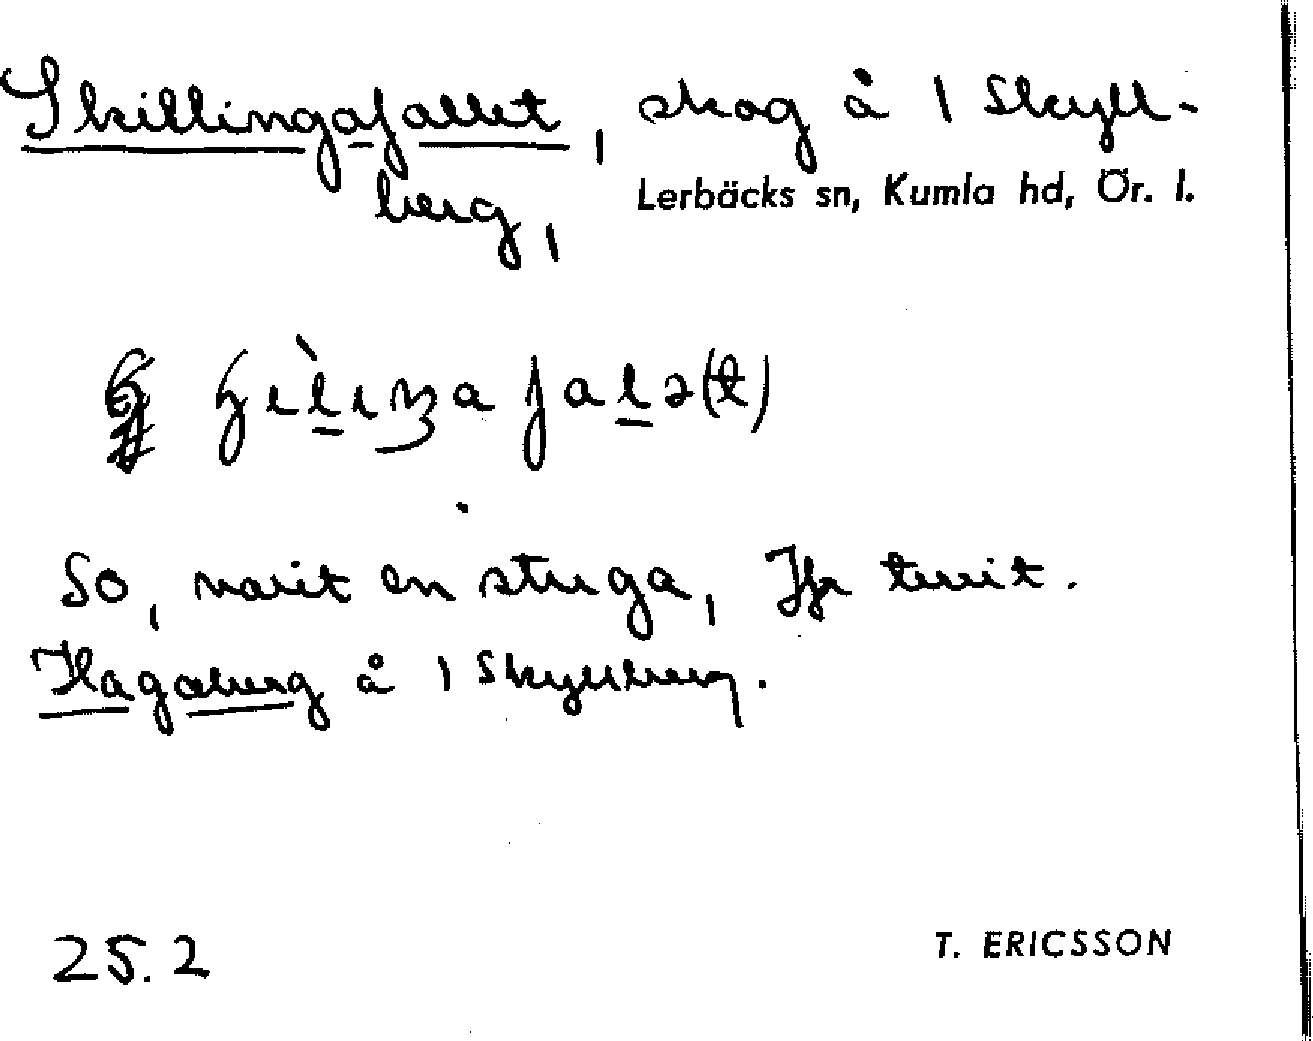 Skillingafallet, skog å 1 Skyll-
berg,
Lerbäcks sn, Kumla hd, Ör. l.
So, varit en stuga, Jfr territ.
Hagaberg å 1 Skyllberg.
25.2
T. ERICSSON